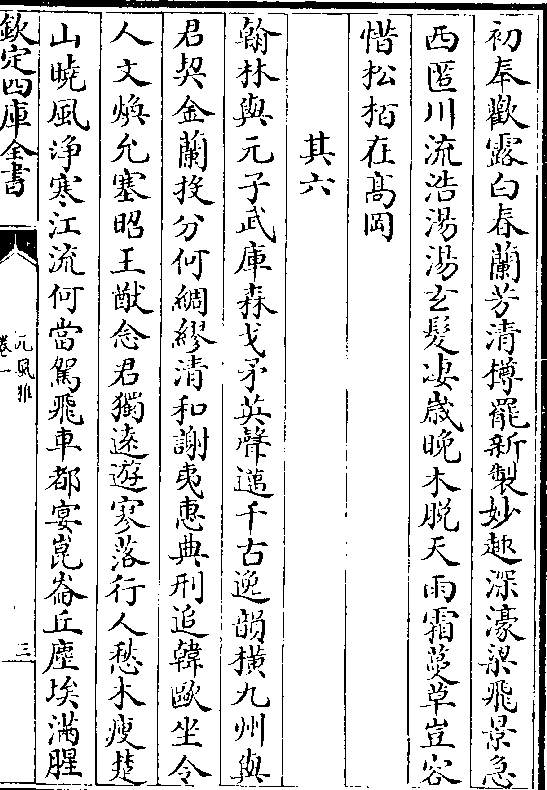 初奉歡露白春蘭芳清樽罷新製妙趣深濠梁飛景急
西匿川流浩湯湯玄髮凄歲晚木脫天雨霜蔓草豈容
惜松栢在髙岡
其六
翰林與元子武庫森戈矛英聲邁千古逸韻橫九州與
君契金蘭投分何綢繆清和謝夷惠典刑追韓歐坐令
人文煥允塞昭王猷念君獨逺遊寥落行人愁木瘦楚
山曉風浄寒江流何當駕飛車都宴崑崙丘塵埃滿腥
欽定四庫全書
元風雅
卷一
三